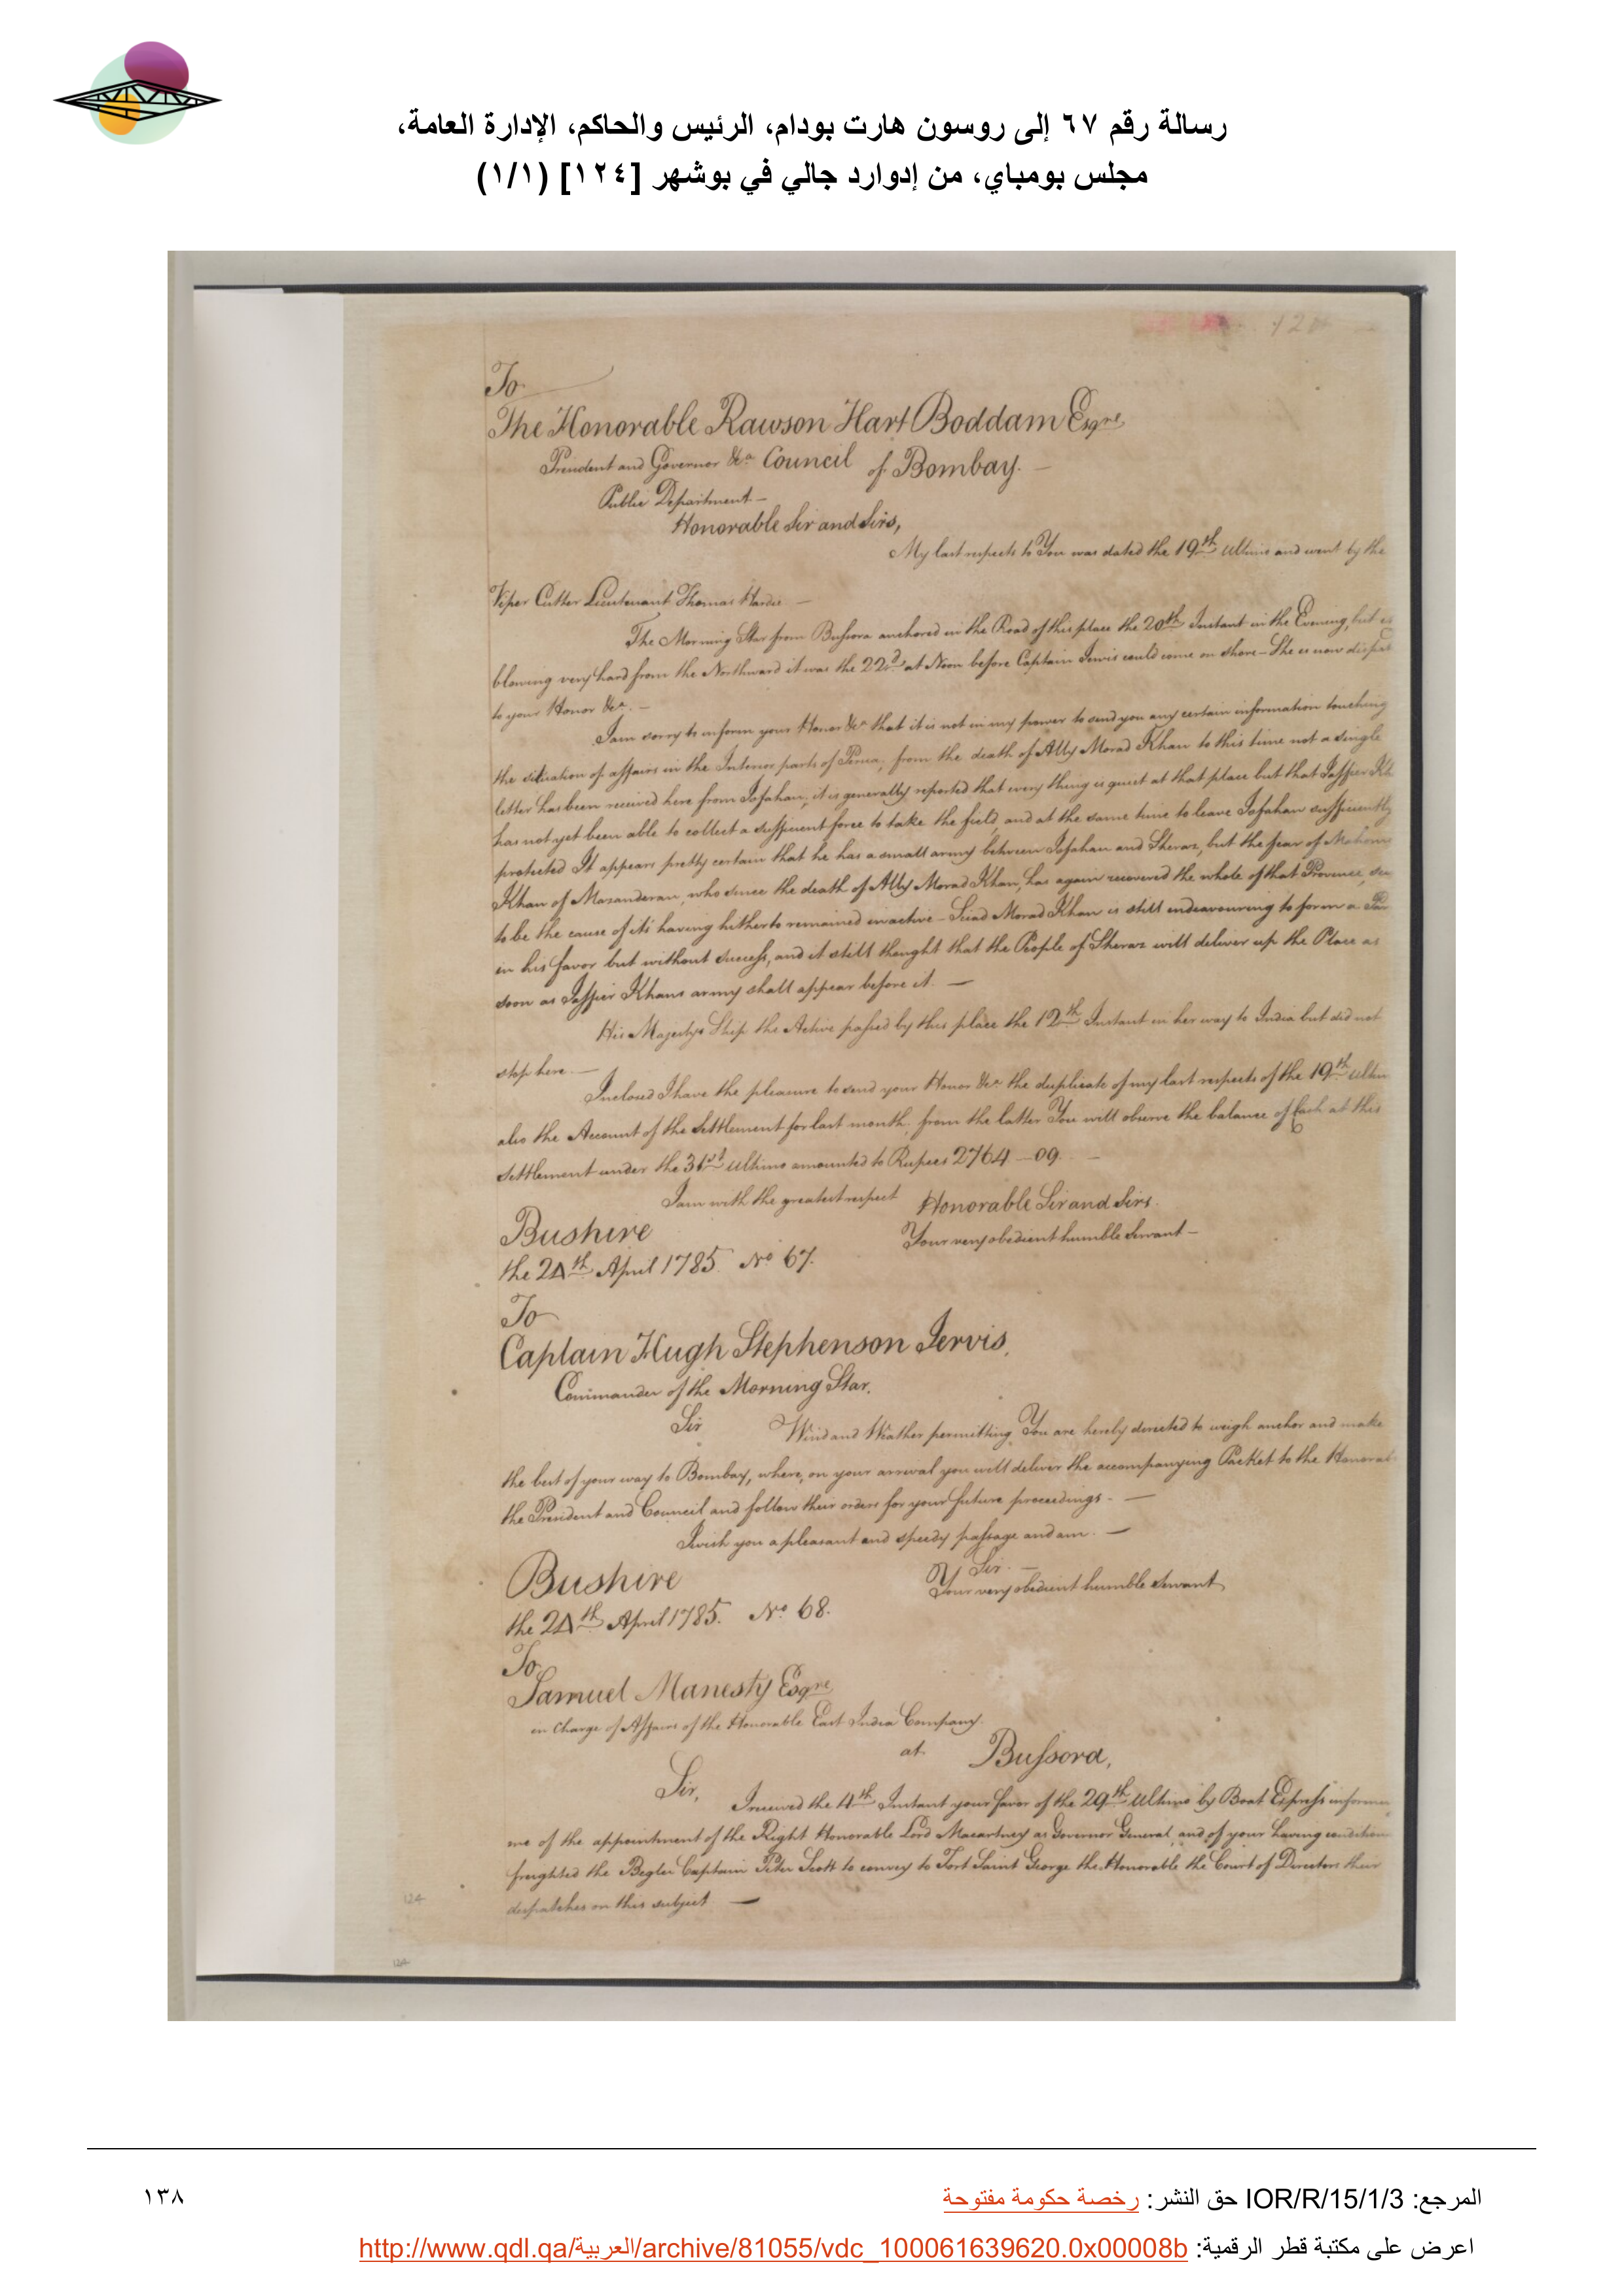 رسالة رقم ٦٧ إلى روسون هارت بودام، الرئيس والحاكم، الإدارة العامة،
مجلس بومباي، من إدوارد جالي في بوشهر [١٢٤] (١/١)
To
The Honorable Rawson Hart Boddam Esqre
President and Governor &ca Council of Bombay. —
Public Department —
Honorable Sir and Sirs,
My last respects to You was dated the 19th Ultimo and went by the
Viper Cutter Lieutenant Thomas —
The Morning Star from Bussora anchored in the Road of this place the 20th Instant in the Evening, but
blowing very hard from the Northward it was the 22d at Noon before Captain Jervis could come on shore – She is now
to your Honor &ca. —
I am sorry to inform your Honor &ca that it is not in my power to send you any certain information touching
the situation of affairs in the Interior parts of Persia, from the death of Ally Morad Khan to this time not a single
letter has been received here from Isfahan, it is generally reported that every thing is quiet at that place but that Jaffier
has not yet been able to collect a sufficient force to take the field, and at the same time to leave Isfahan sufficiently
protected It appears pretty certain that he has a small army between Isfahan and Sheraz, but the fear of
Khan of Mazanderan, who since the death of Ally Morad Khan, has again recovered the whole of that Province,
to be the cause of its having hitherto remained inactive – Siad Morad Khan is still endeavouring to form a
in his favor but without success, and it still thought that the People of Sheraz will deliver up the Place as
soon as Jaffier Khans army shall appear before it. —
His Majestys Ship the Active passed by this place the 12th Instant in her way to India but did not
stop here. —
Inclosed I have the pleasure to send your Honor &ca the duplicate of my last respects of the 19th
also the Account of the Settlement for last month, from the latter You will observe the balance of Cash at this
Settlement under the 31st Ultimo amounted to Rupees 2764 – 09. —
I am with the greatest respect Honorable Sir and Sirs.
Bushire Your very obedient humble Servant —
the 24th April 1785 No 67.
To
Captain Hugh Stephenson Jervis,
Commander of the Morning Star.
Sir Wind and Weather permitting You are hereby directed to weigh anchor and make
the best of your way to Bombay, where, on your arrival you will deliver the accompanying Packet to the
the President and Council and follow their orders for your future proceedings. —
I wish you a pleasant and speedy passage and am. —
Sir. —
Bushire Your very obedient humble Servant
the 24th April 1785. No 68.
To
Samuel Manesty Esqre
in Charge of Affairs of the Honorable East India Company.
at Bussora,
Sir, I received the 4th Instant your favor of the 29th Ultimo by Boat Express
me of the appointment of the Right Honorable Lord Macartney as Governor General, and of your having
freighted the Begler Captain Peter Scott to convey to Fort Saint George the Honorable the Court of Directors their
despatches on this subject —
124
المرجع: IOR/R/15/1/3 حق النشر: رخصة حكومة مفتوحة
١٣٨
اعرض على مكتبة قطر الرقمية: http://www.qdl.qa/العربية/archive/81055/vdc_100061639620.0x00008b